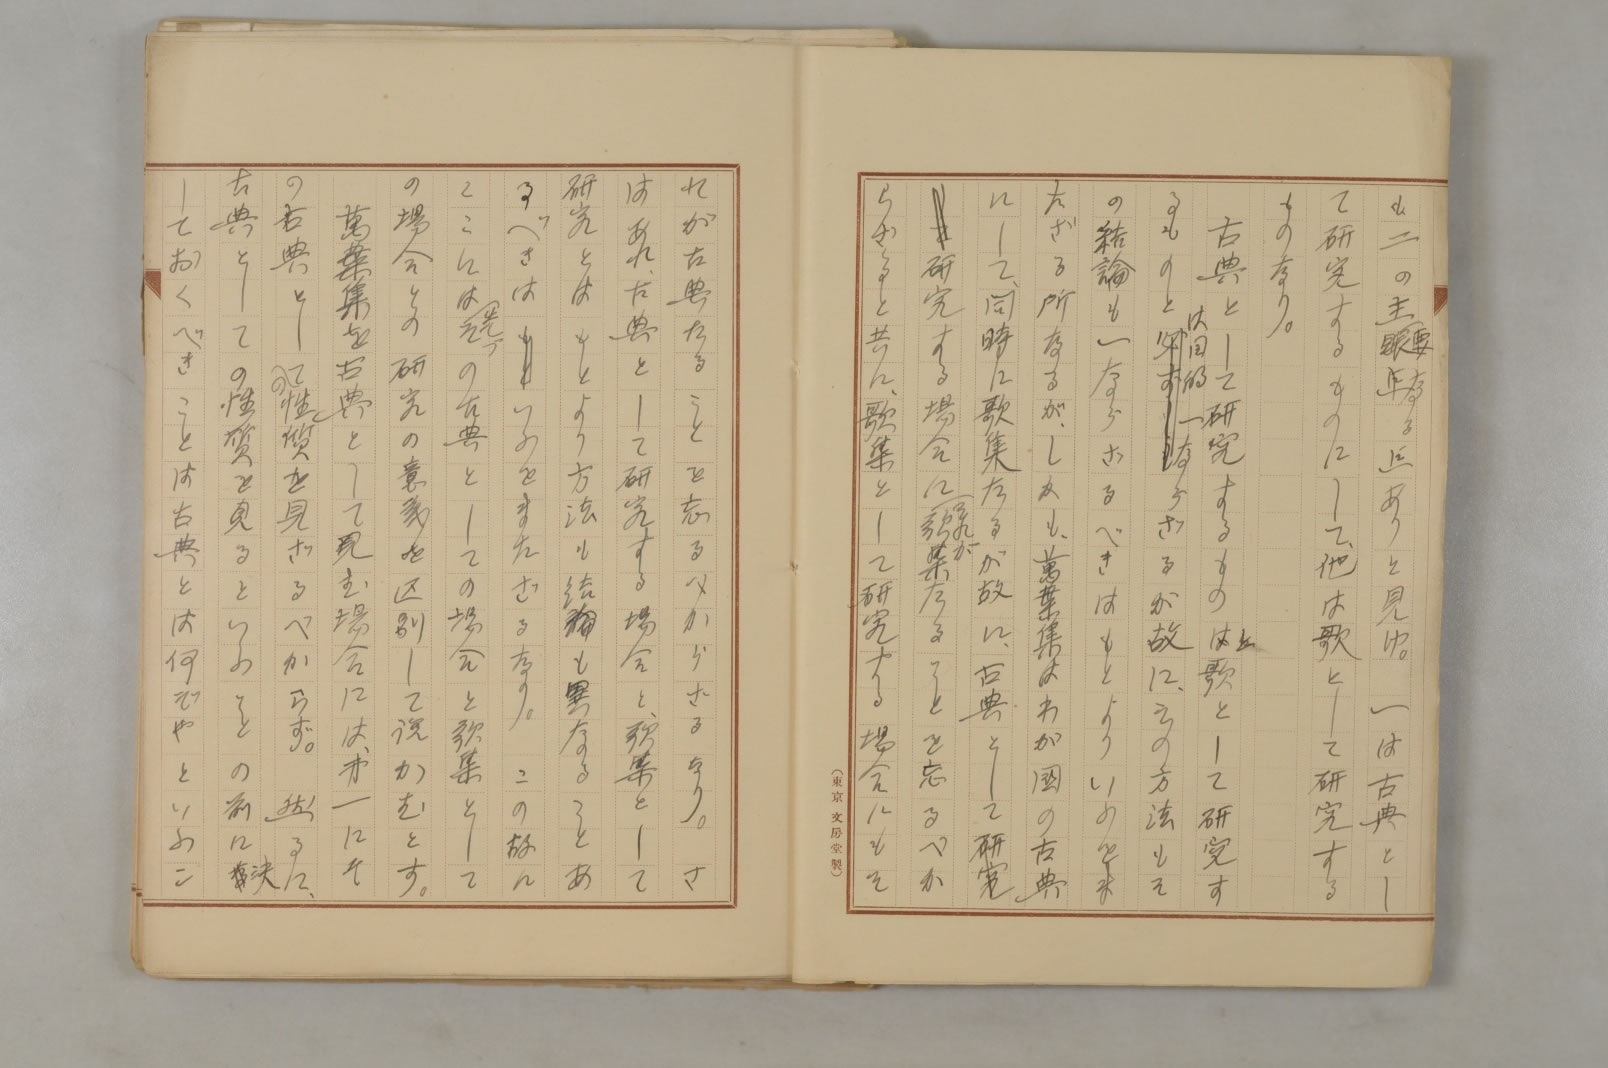 も二の主要なる区ありと見ゆ。一は古典とし
て研究するものにして、他は歌として研究する
ものなり。
古典として研究するものは歌として研究す
るものと目的一ならざるが故に、その方法もそ
の結論も一ならざるべきはもとよりいふをま
たざる所なるが、しかも、萬葉集はわが國の古典
にして、同時に歌集たるが故に、古典として研究
研究する場合にそれが歌集たることを忘るべか
らざると共に、歌集として研究する場合にもそ
(東京 文房堂製)
れが古典たることを忘るべからざるなり。さ
はあれ、古典として研究する場合と、歌集として
研究とはもとより方法も結論も異なることあ
るべきはいふをまたざるなり。この故に
ここには先づその古典としての場合と歌集として
の場合との研究の意義を区別して説かむとす。
萬葉集を古典として見む場合には、第一にそ
の古典としての性質を見ざるべからず。然るに、
古典としての性質を見るといふことの前に決
しておくべきことは古典とは何ぞやといふこ